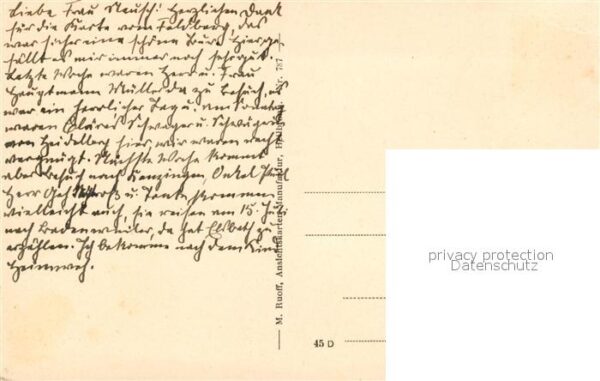 Liebe Frau Rausch! Herzlichen Dank
für die Karte vom Feldberg, das
war sicher eine schöne Tour. Hier ge-
fällt es mir immer noch sehr gut.
Letzte Woche waren Herr u. Frau
Hauptmann Müller da zu Besuch, es
war ein herrlicher Tag u. am Sonntag
waren Schwager u. Schwägerin
von Heidelberg hier, wir waren recht
vergnügt. Nächste Woche kommt
aber Besuch nach Kenzingen, Onkel
Herr u. Tante kommen
vielleicht auch, sie reisen am 15. Juli
nach Badenweiler, da hat Elsbeth zu
erzählen. Ich bekomme nach dem Kind
Heimweh.
M. Ruoff, Ansichtskarten-Manufaktur, Nr. 787
45 D
privacy protection
Datenschutz